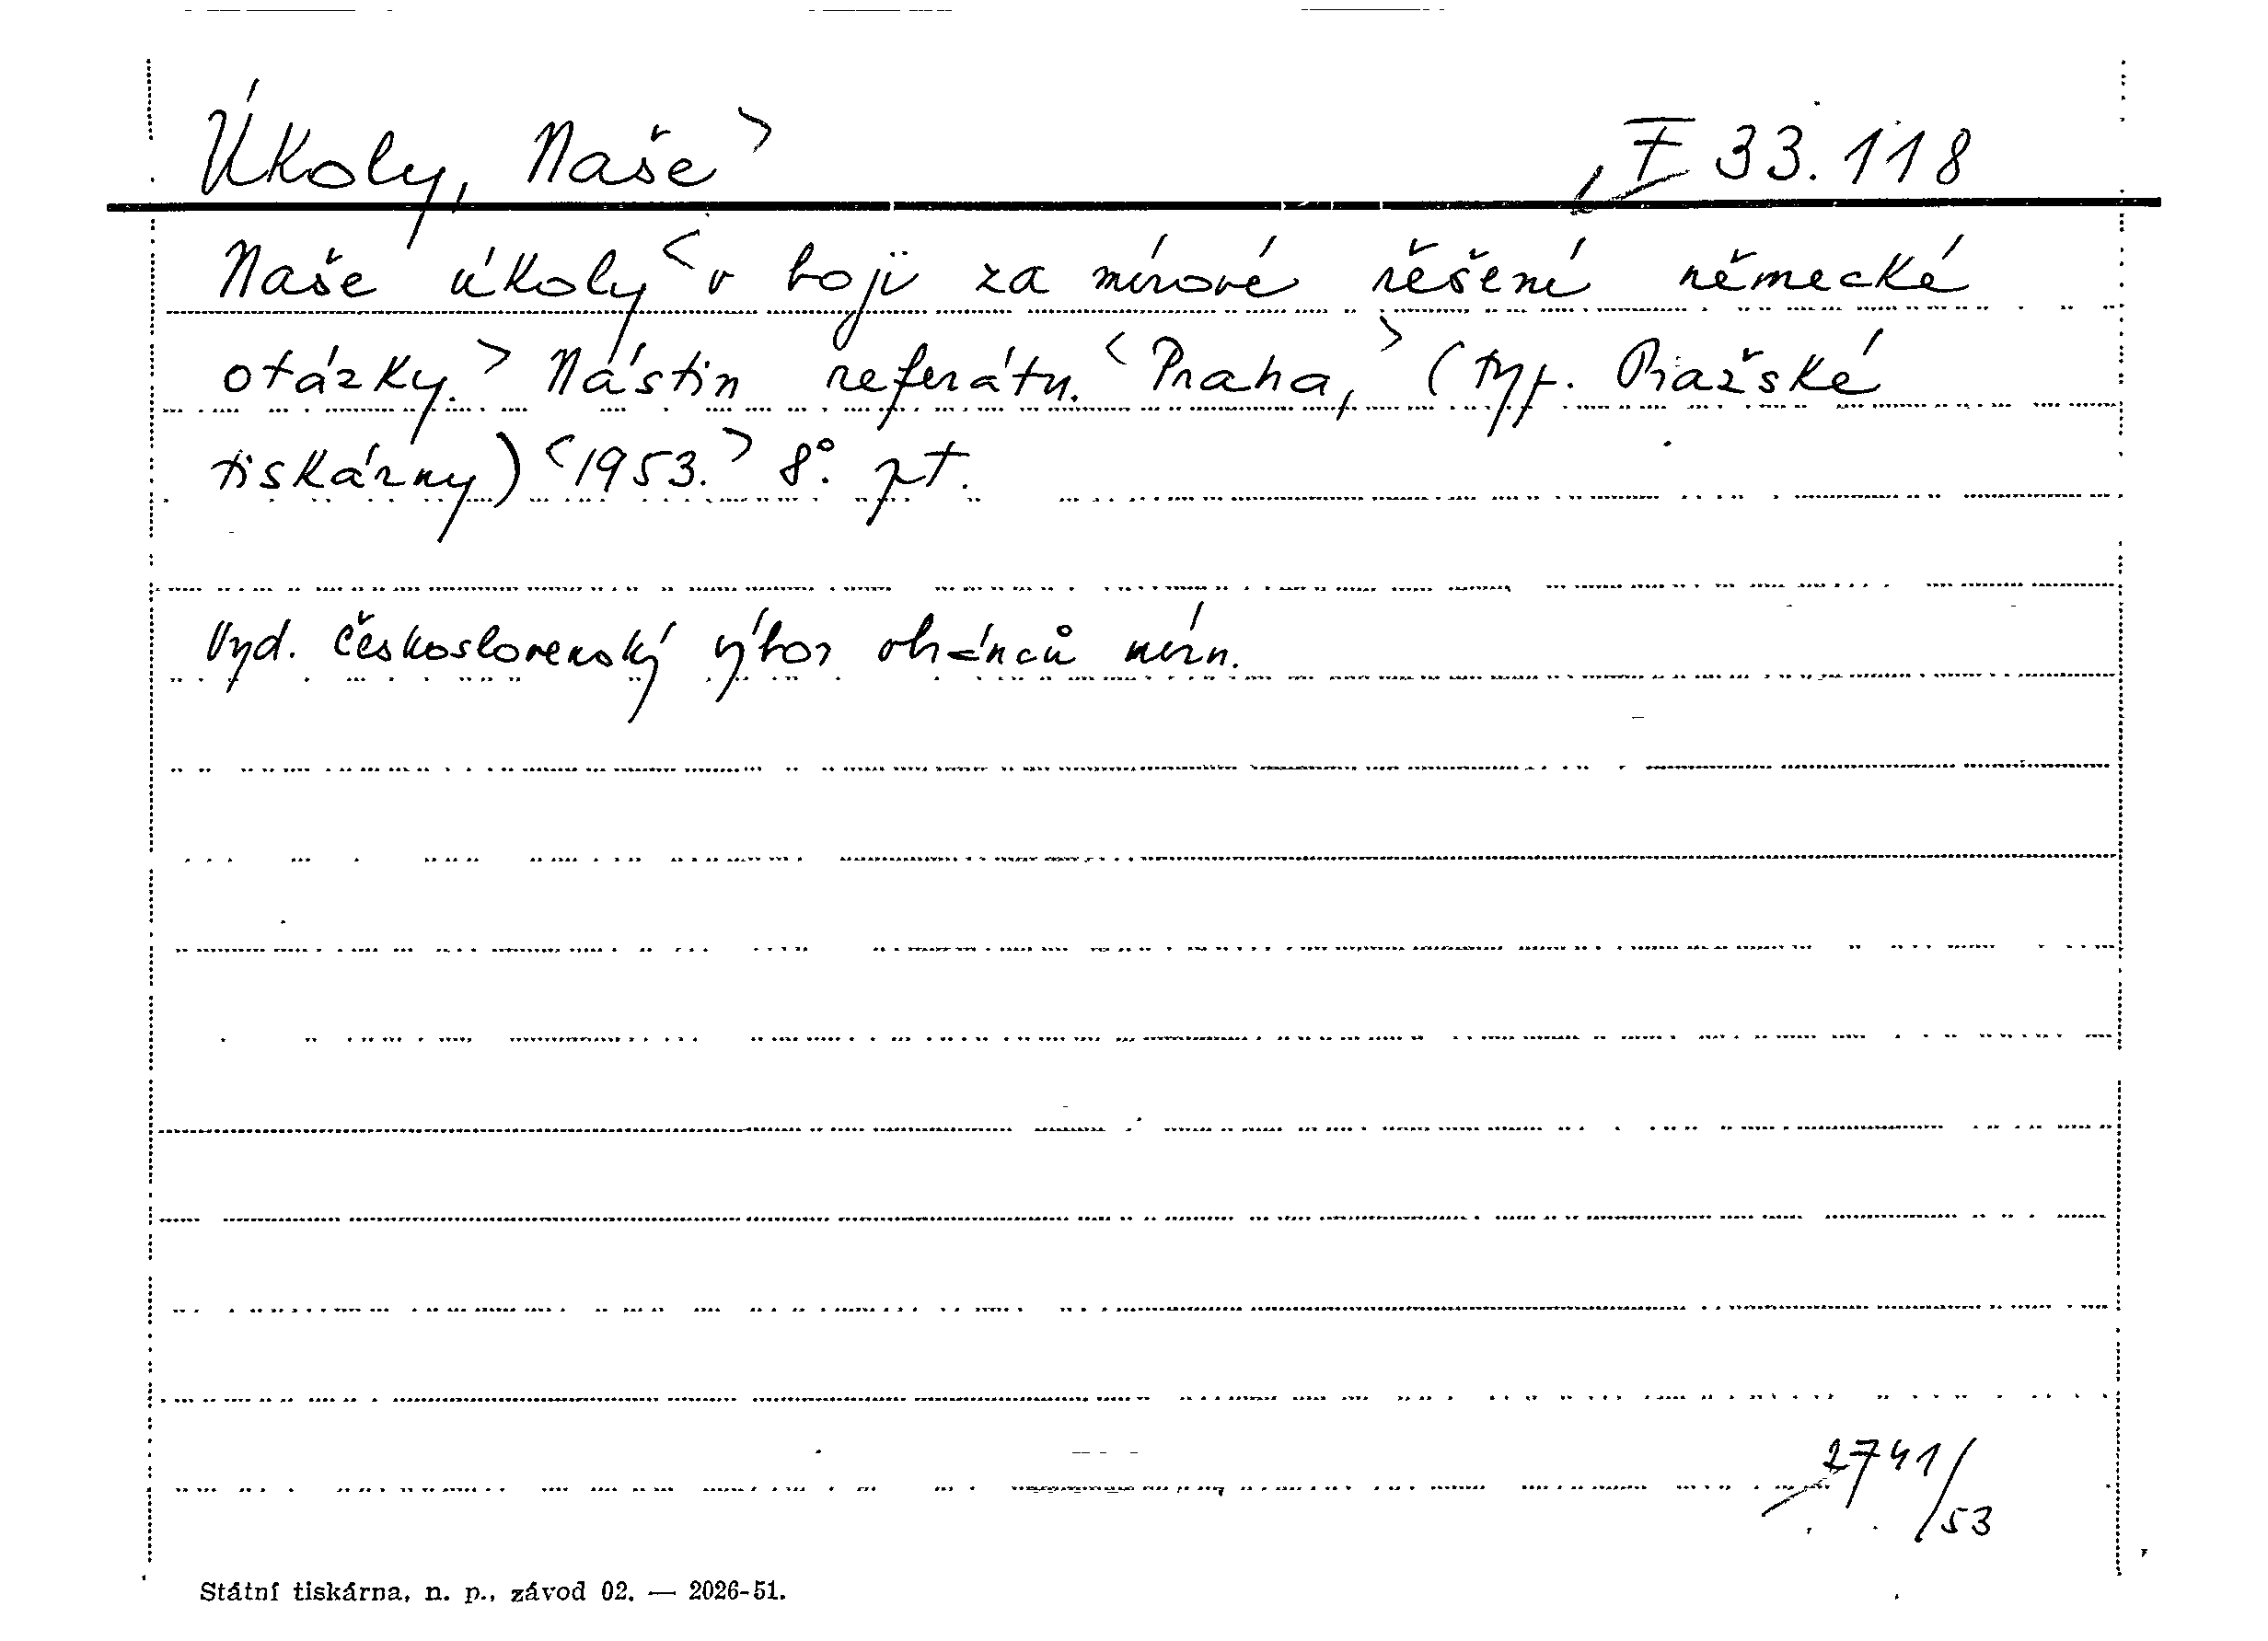 Úkoly, Naše> F 33.118
Naše úkoly < v boji za mírové řěšení německé
otázky.> Nástin referátu. <Praha,> (typ. Pražské
tiskárny) <1953.> 8°. pt.
Vyd. československý výbor obránců míru.
2741/53
Státní tiskárna, n. p., závod 02. — 2026-51.